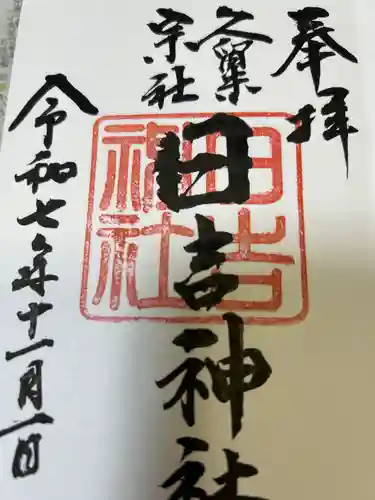 奉拝
久翼
宗社
日吉神社
日吉
神社
令和七年十一月一日